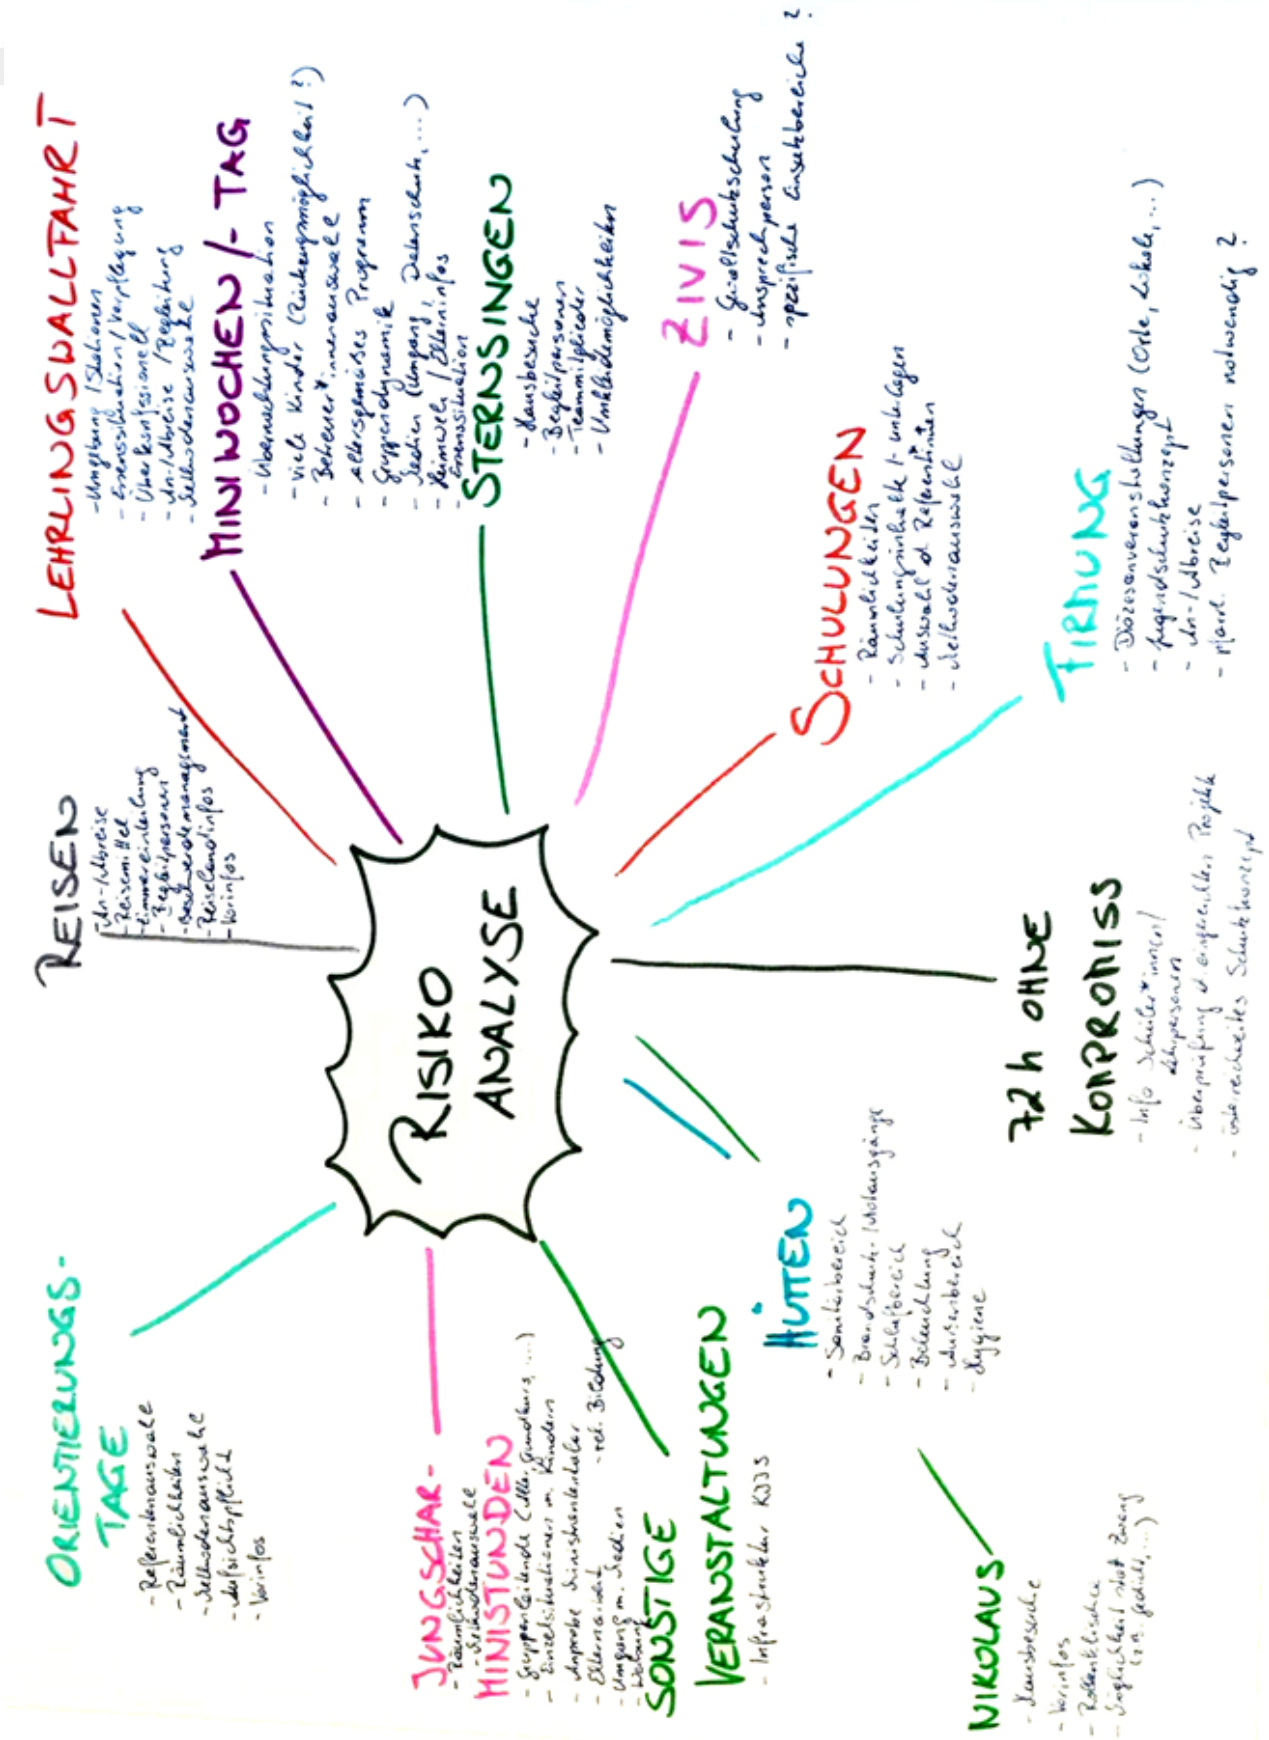 RISIKO
ANALYSE
ORIENTIERUNGS-
TAGE
- Referentenauswahl
- Räumlichkeiten
- Methodenauswahl
- Aufsichtspflicht
- Vorinfos
REISEN
- An-/Abreise
- Reisemittel
- Zimmereinteilung
- Begleitpersonen
- Beschwerdemanagement
- Reiselandinfos
- Vorinfos
LEHRLINGSWALLFAHRT
- Umgebung / Stationen
- Essenssituation / Verpflegung
- Überkonfessionell
- An-/Abreise / Begleitung
- Methodenauswahl
MINIWOCHEN /- TAG
- Übernachtungssituation
- viele Kinder (Rückzugsmöglichkeit?)
- Betreuer*innenauswahl
- altersgemäßes Programm
- Gruppendynamik
- Medien (Umgang, Datenschutz, ...)
- Heimweh / Elterninfos
- Essenssituation
STERNSINGEN
- Hausbesuche
- Begleitpersonen
- Teammitglieder
- Umkleidemöglichkeiten
ZIVIS
- Gewaltschutzschulung
- Ansprechperson
- spezifische Einsatzbereiche?
SCHULUNGEN
- Räumlichkeiten
- Schulungsinhalte + -unterlagen
- Auswahl d. Referent*innen
- Methodenauswahl
FIRMUNG
- Diözesanveranstaltungen (Orte, Lokale, ...)
- Jugendschutzkonzept
- An-/Abreise
- Pfarrl. Begleitpersonen notwendig?
72h OHNE
KOMPROMISS
- Info Schüler*innen/
Lehrpersonen
- Überprüfung d. eingereichten Projekte
- österreichweites Schutzkonzept
HÜTTEN
- Sanitärbereich
- Brandschutz- / Notausgänge
- Schlafbereich
- Beleuchtung
- Außenbereich
- Hygiene
NIKOLAUS
- Hausbesuche
- Vorinfos
- Rollenklischee
- Möglichkeit statt Zwang
(z.B. Gedicht, ...)
SONSTIGE
VERANSTALTUNGEN
- Infrastruktur KJJS
JUNGSCHAR-
- Räumlichkeiten
- Methodenauswahl
MINISTUNDEN
- Gruppenleitende (Alter, Grundkurs, ...)
- Einzelsituationen m. Kindern
- Anprobe Ministrantenkutten
- Elternarbeit
- rel. Bildung
- Umgang m. Medien